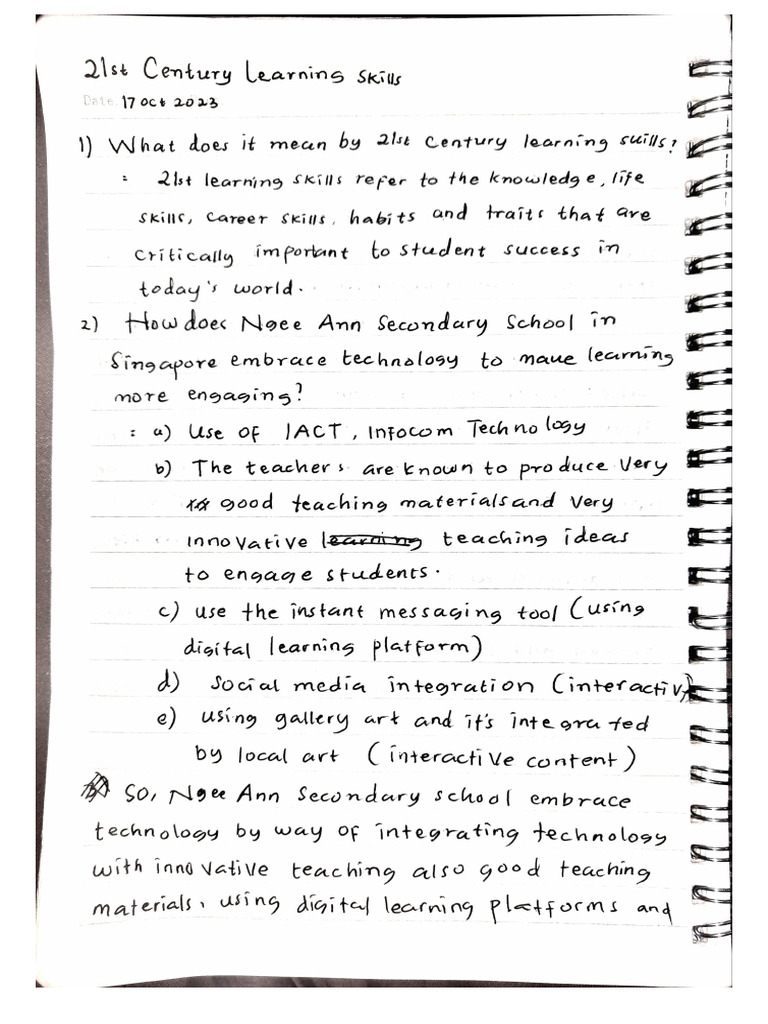 21st Century Learning Skills
Date: 17 Oct 2023
1) What does it mean by 21st Century learning skills?
: 21st learning skills refer to the knowledge, life
skills, career skills, habits and traits that are
critically important to student success in
today's world.
2) How does Ngee Ann Secondary School in
Singapore embrace technology to make learning
more engaging?
: a) Use of IACT, Infocom Technology
b) The teachers are known to produce very
good teaching materials and very
innovative learning teaching ideas
to engage students.
c) use the instant messaging tool (using
digital learning platform)
d) social media integration (interactiv
e) using gallery art and it's integrated
by local art (interactive content)
So, Ngee Ann Secondary school embrace
technology by way of integrating technology
with innovative teaching also good teaching
materials, using digital learning platforms and